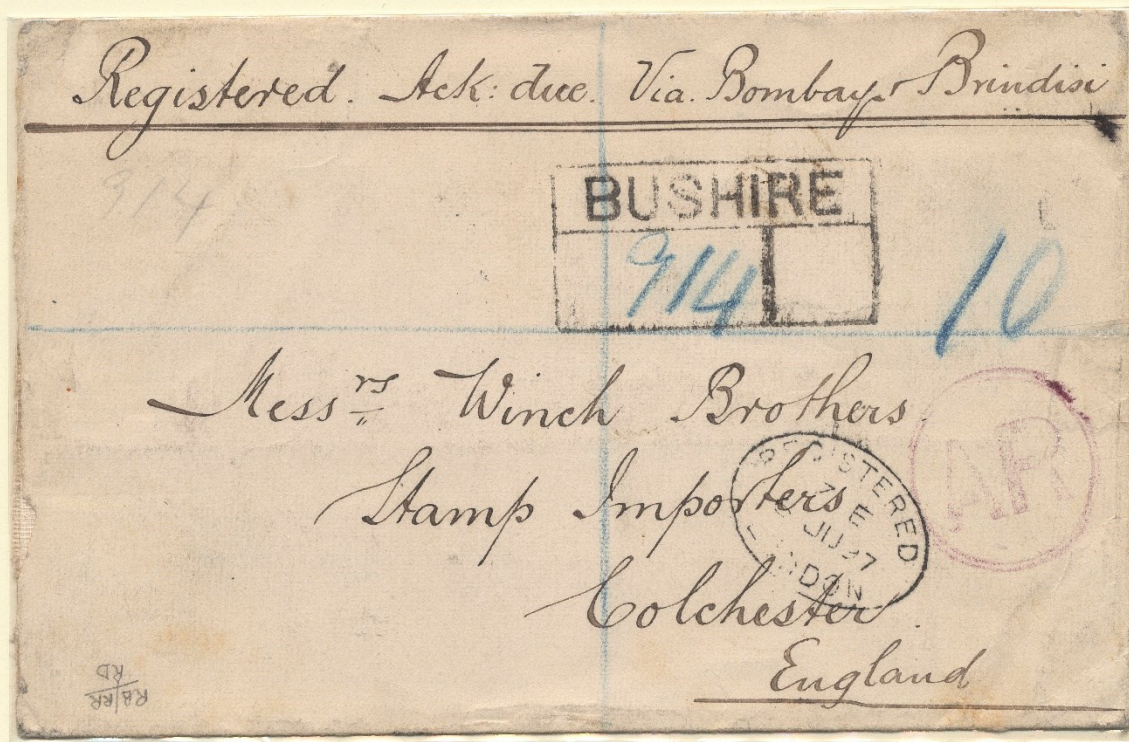 Registered. Ack: due. Via. Bombay & Brindisi
914
BUSHIRE
914
10
Messrs Winch Brothers
Stamp Importers
Colchester.
England
AR
REGISTERED
LONDON